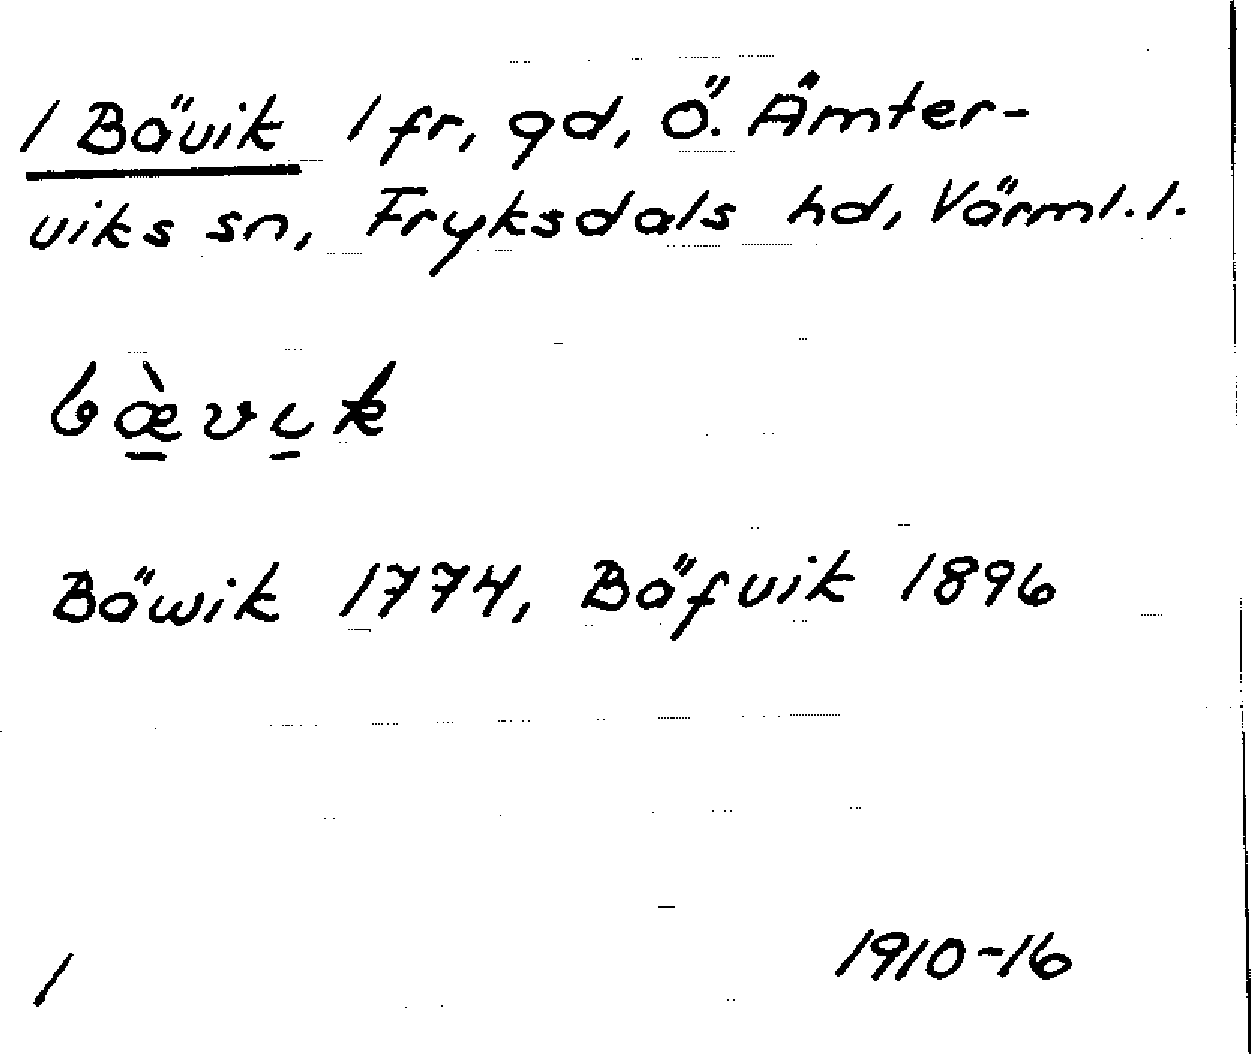 1 Bävik 1 fr, gd, Ö. Ämter-
viks sn, Fryksdals hd, Värml. l.
bæ̠̀vi̠k
Bäwik 1774, Bäfvik 1896
1 1910-16